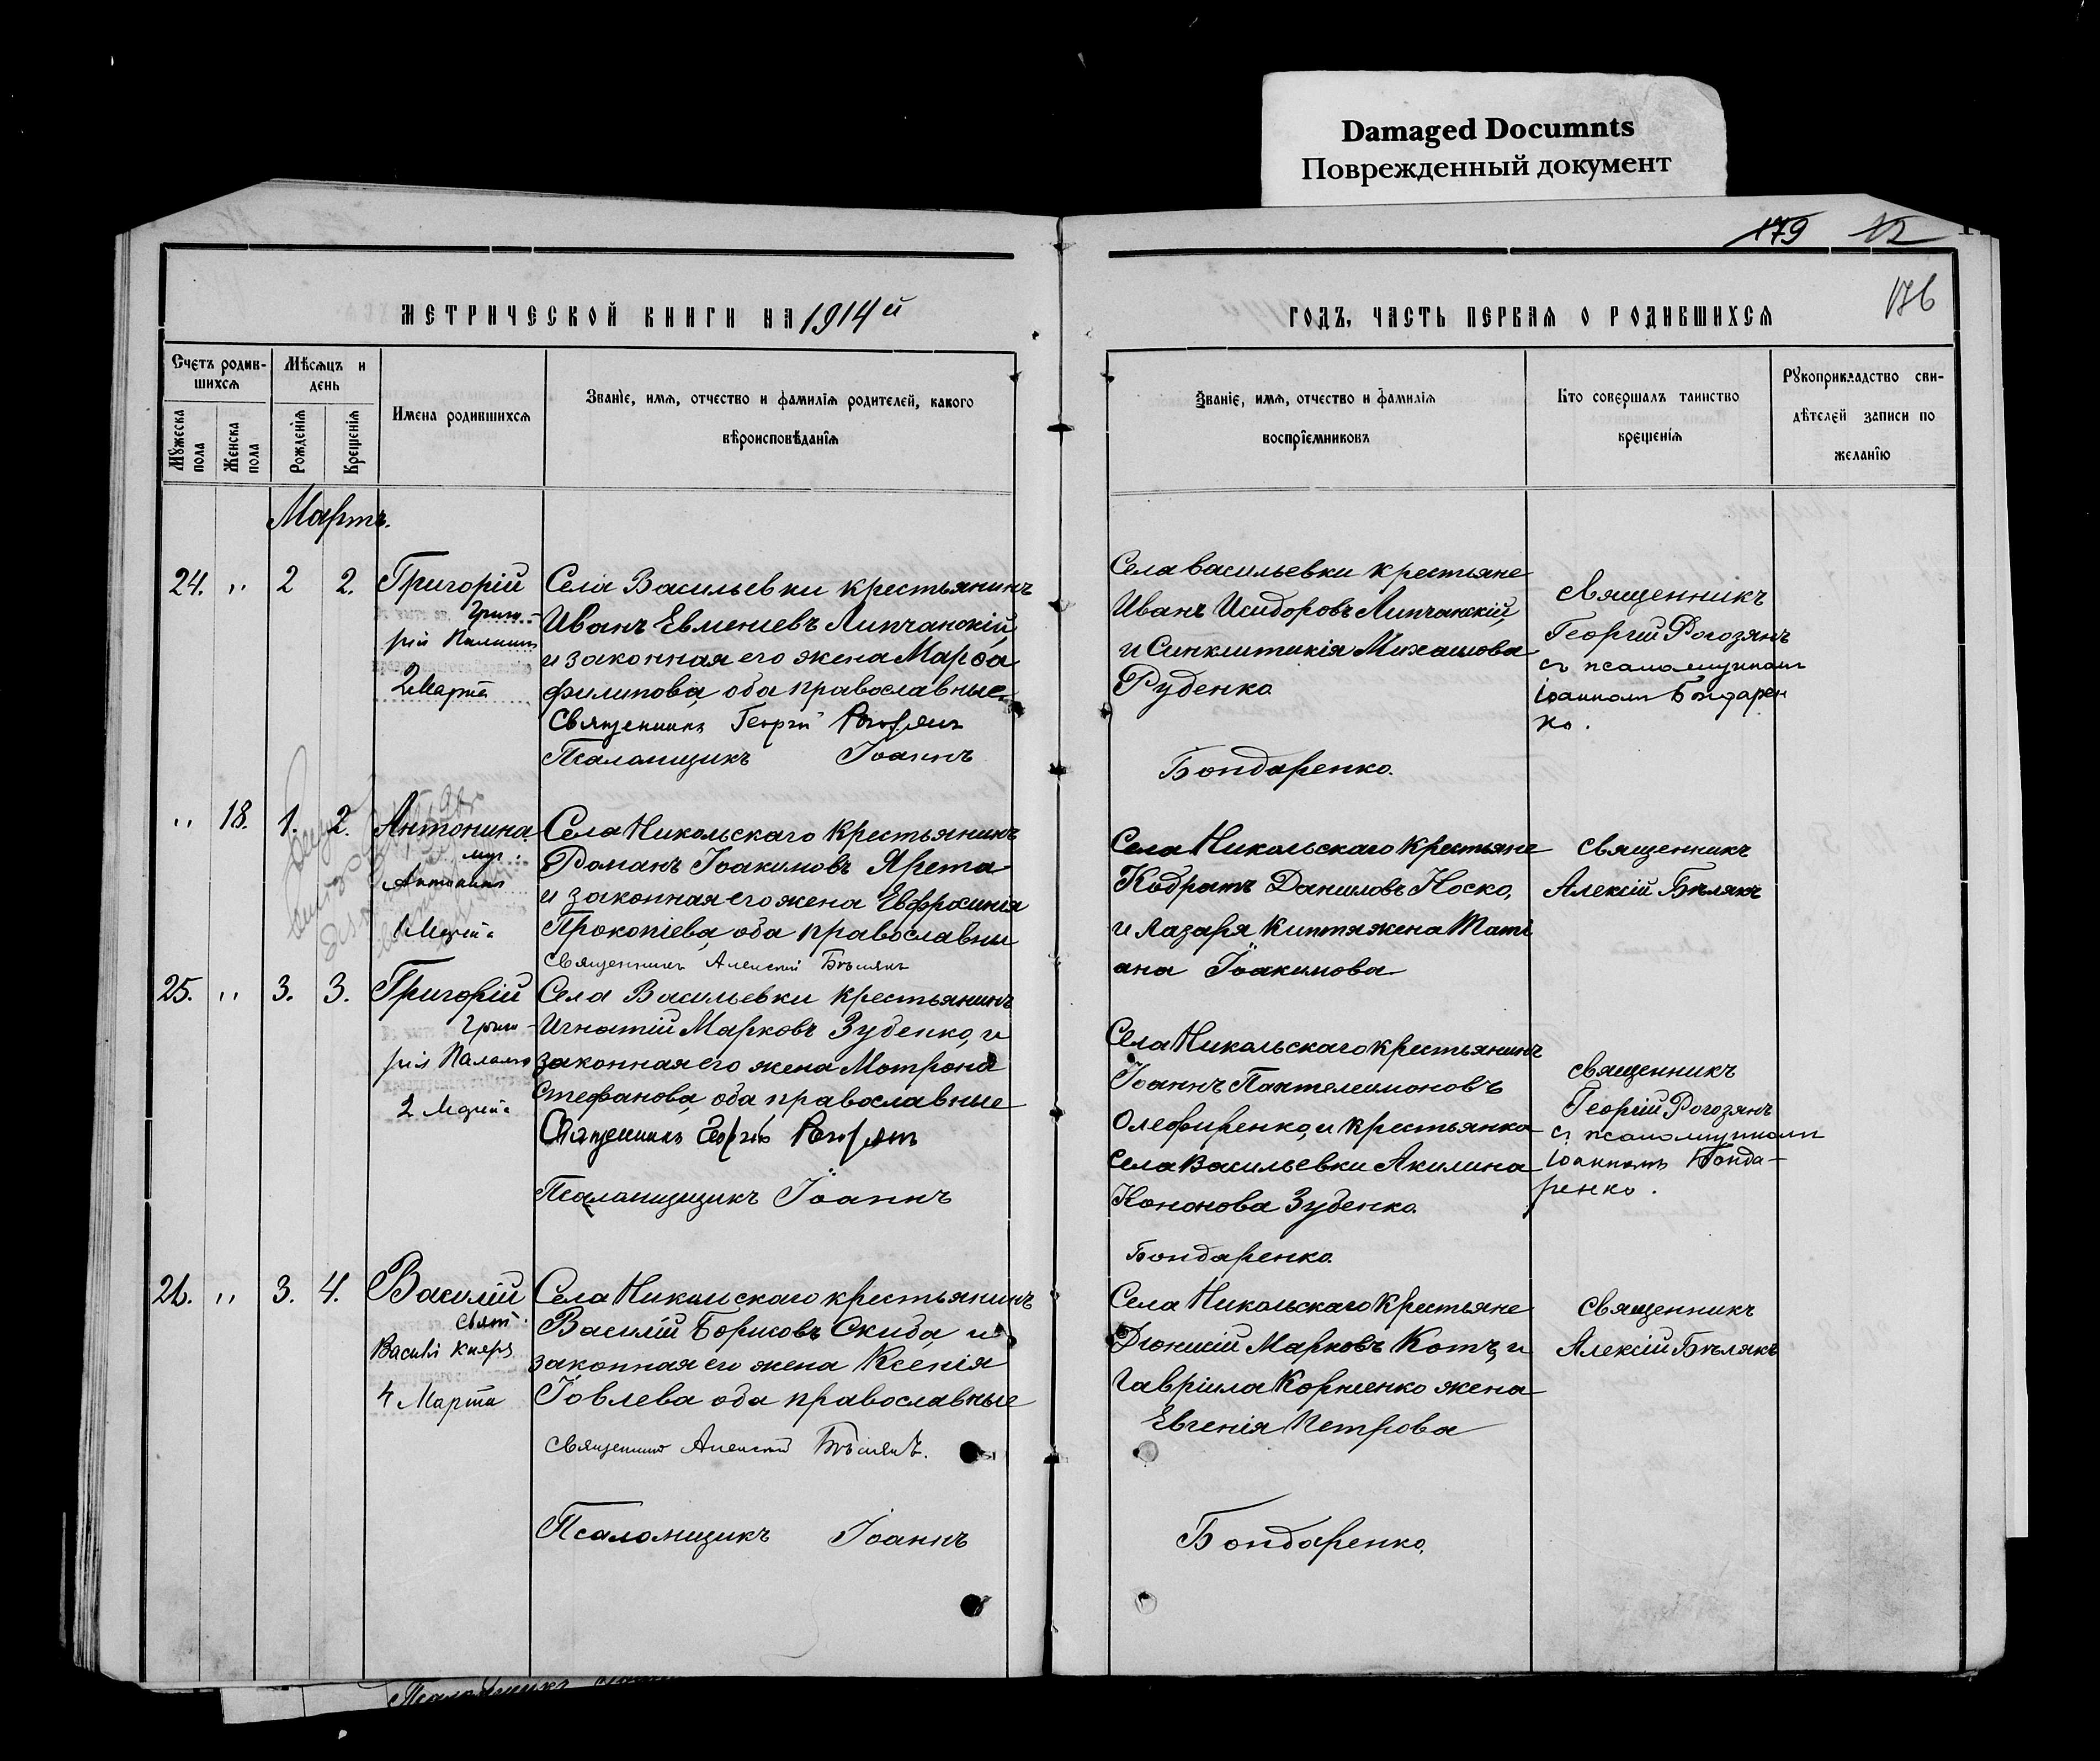 Damaged Documnts
Поврежденный документ
179 12
176
МЕТРИЧЕСКОЙ КНИГИ НА 1914й
ГОДЪ, ЧАСТЬ ПЕРВАЯ О РОДИВШИХСЯ
Счетъ родив-
шихся
Мѣсяцъ и
день
Мужеска
пола
Женска
пола
Рожденія
Крещенія
Имена родившихся
Званіе, имя, отчество и фамилія родителей, какого
вѣроисповѣданія
Званіе, имя, отчество и фамилія
воспріемниковъ
Кто совершалъ таинство
крещенія
Рукоприкладство сви-
дѣтелей записи по
желанію
Мартъ.
24. „ 2 2. Григорій
Григо-
рія
2 Марта
Села Васильевки крестьянинъ
Иванъ Евменіевъ Липчанскій,
и законная его жена Марѳа
Филипова, оба православные.
Священникъ Георгій Рогозянъ
Псаломщикъ Іоаннъ
Села Васильевки крестьяне
Иванъ Исидоровъ Липчанскій,
и Синклитикія Михаилова
Руденко
Бондаренко.
Священникъ
Георгій Рогозянъ
съ псаломщикомъ
Іоанномъ Бондарен
ко.
„ 18. 1. 2. Антонина.
муч.
1 Марта
Села Никольскаго крестьянинъ
Романъ Іоакимовъ Ярета
и законная его жена Евфросинія
Прокопіева, оба православны
Священникъ Алексій Бѣлякъ
Села Никольскаго крестьяне
Кодратъ Даниловъ Носко,
и Лазаря Киптя жена Тати
ана Іоакимова
Священникъ
Алексій Бѣлякъ
25. „ 3. 3. Григорій
Григо-
рія
2 Марта
Села Васильевки крестьянинъ
Игнатій Марковъ Зубенко, и
законная его жена Мотрона
Стефанова, оба православные
Священникъ Георгій Рогозянъ
Псаломщикъ Іоаннъ
Села Никольскаго крестьянинъ
Іоаннъ Пантелеимоновъ
Олефиренко, и крестьянка
Села Васильевки Акилина
Кононова Зубенко.
Бондаренко.
Священникъ
Георгій Рогозянъ
съ псаломщикомъ
Іоанномъ Бонда-
ренко.
26. „ 3. 4. Василій
Свят.
4 Марта
Села Никольскаго крестьянинъ
Василій Борисовъ Скиба, и
законная его жена Ксенія
Іовлева оба православные
Священникъ Алексій Бѣлякъ.
Псаломщикъ Іоаннъ
Села Никольскаго крестьяне
Діонисій Марковъ Котъ, и
Гавріила Корніенко жена
Евгенія Петрова
Бондаренко.
Священникъ
Алексій Бѣлякъ